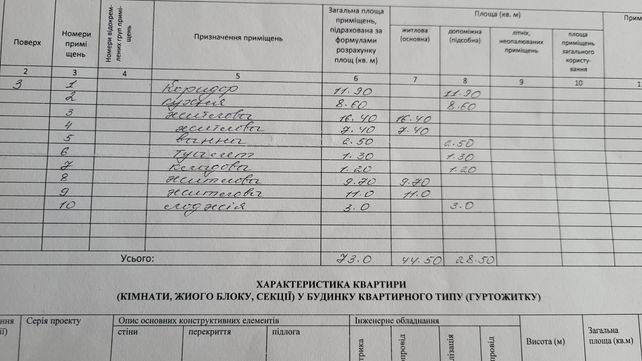 Поверх Номери приміщень Номери відокремлених груп приміщень Призначення приміщень Загальна площа приміщень, підрахована за формулами розрахунку площ (кв. м) Площа (кв. м) Прим
житлова (основна) допоміжна (підсобна) літніх, неопалюваних приміщень площа приміщень загального користування
2 3 4 5 6 7 8 9 10 1
3 1 Коридор 11.90 11.90
2 кухня 8.60 8.60
3 житлова 16.40 16.40
4 житлова 7.40 7.40
5 ванна 2.50 2.50
6 туалет 1.30 1.30
7 Кладова 1.20 1.20
8 житлова 9.70 9.70
9 житлова 11.0 11.0
10 лоджія 3.0 3.0
Усього: 73.0 44.50 28.50
ХАРАКТЕРИСТИКА КВАРТИРИ
(КІМНАТИ, ЖИОГО БЛОКУ, СЕКЦІЇ) У БУДИНКУ КВАРТИРНОГО ТИПУ (ГУРТОЖИТКУ)
Серія проекту Опис основних конструктивних елементів Інженерне обладнання Висота (м) Загальна площа (кв.м)
стіни перекриття підлога